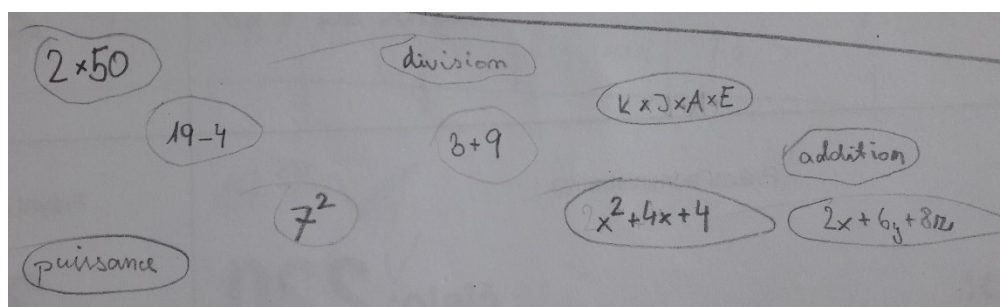 2×50
division
K×J×A×E
19-4
3+9
addition
7²
2x²+4x+4
2x+6y+8
puissance